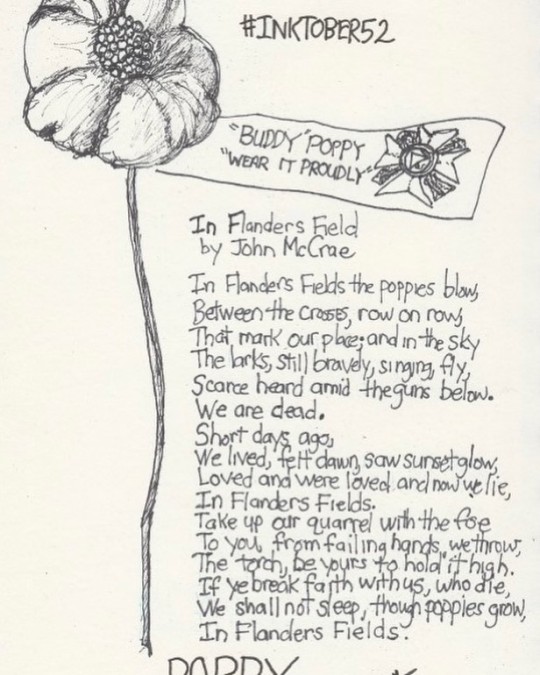 #INKTOBER52
"BUDDY" POPPY
"WEAR IT PROUDLY"
In Flanders Field
by John McCrae
In Flanders Fields the poppies blow,
Between the crosses, row on row,
That mark our place; and in the sky
The larks, still bravely, singing, fly,
Scarce heard amid the guns below.
We are dead.
Short days ago,
We lived, felt dawn, saw sunset glow,
Loved and were loved and now we lie,
In Flanders Fields.
Take up our quarrel with the foe
To you, from failing hands, we throw,
The torch, be yours to hold it high.
If ye break faith with us, who die,
We shall not sleep, though poppies grow,
In Flanders Fields.
POPPY